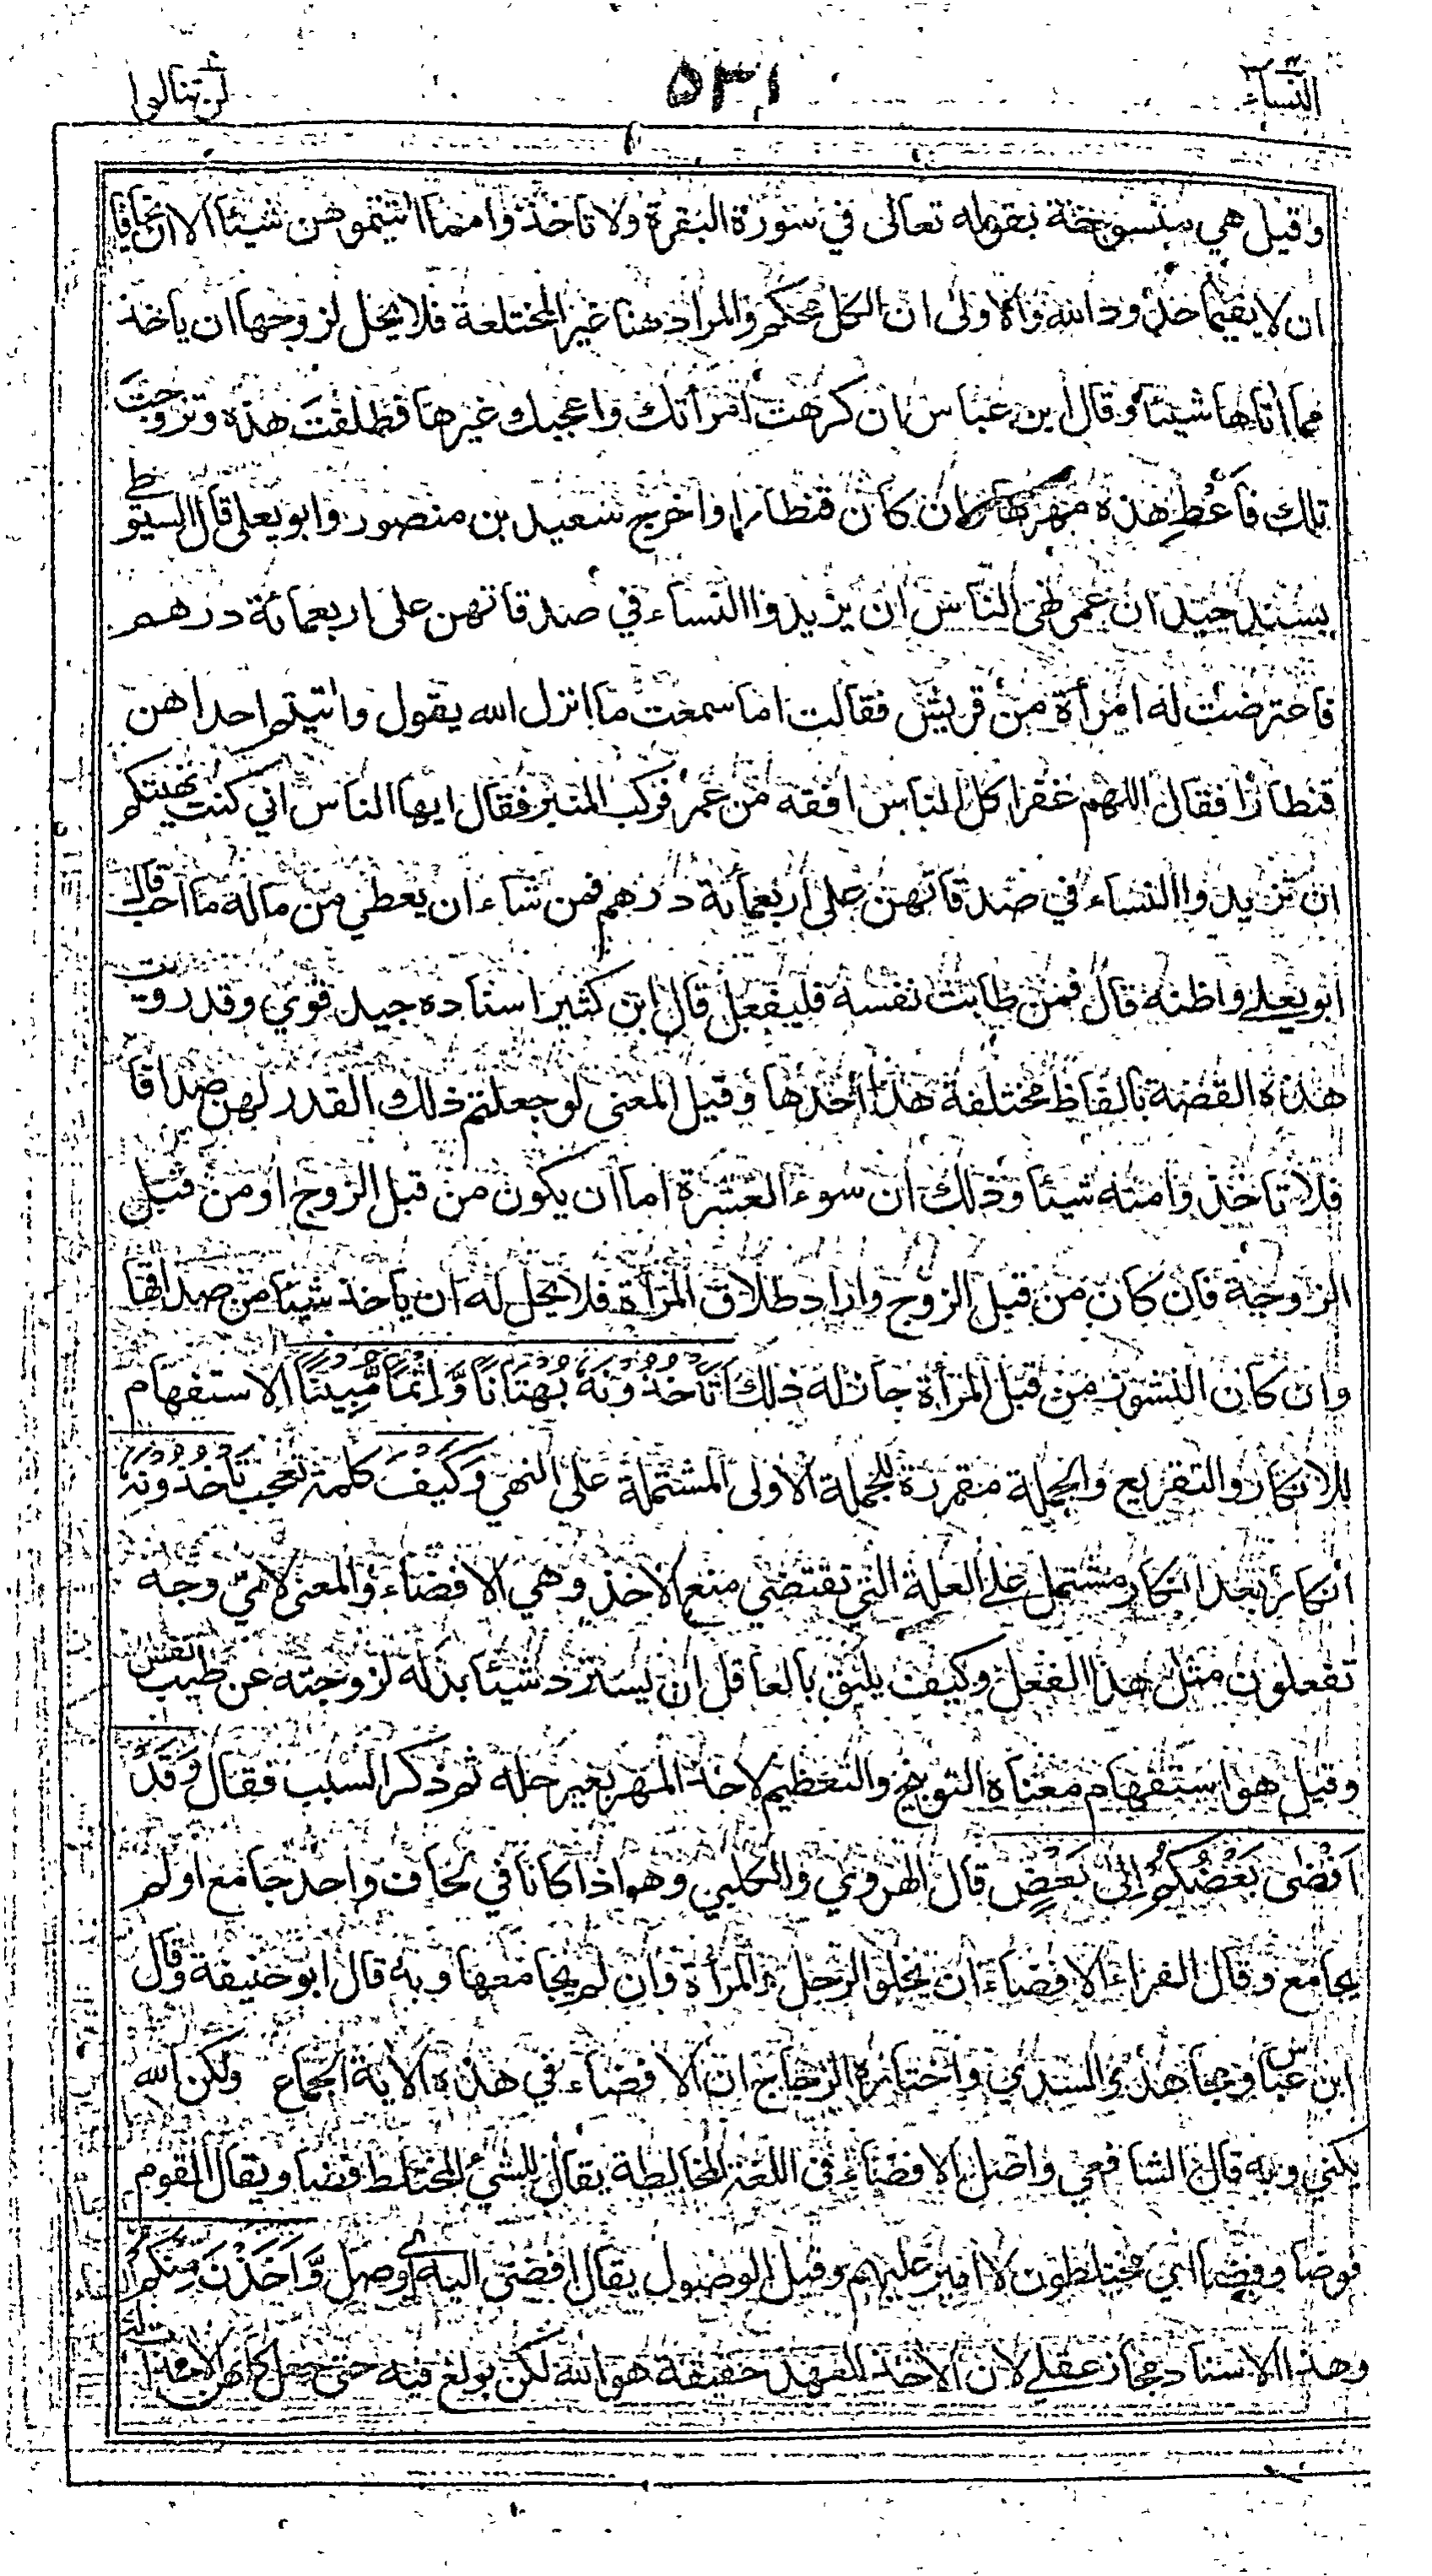 النساء ٥٣١ لن تنالوا
وقيل هي منسوخة بقوله تعالى في سورة البقرة ولا تاخذوا مما اتيتموهن شيئا الا ان يخافا
ان لا يقيما حدود الله والاولى ان الكل محكم والمراد هنا غير المختلعة فلا يحل لزوجها ان ياخذ
مما اتاها شيئا وقال ابن عباس ان كرهت امرأتك واعجبك غيرها فطلقت هذه وتزوجت
تلك فأعط هذه مهرها وان كان قنطارا واخرج سعيد بن منصور وابو يعلى قال السيوطي
بسند جيد ان عمر نهى الناس ان يزيدوا النساء في صدقاتهن على اربعمائة درهم
فاعترضت له امرأة من قريش فقالت اما سمعت ما انزل الله يقول واتيتم احداهن
قنطارا فقال اللهم غفرا كل الناس افقه من عمر فركب المنبر فقال ايها الناس اني كنت نهيتكم
ان تزيدوا النساء في صدقاتهن على اربعمائة درهم فمن شاء ان يعطي من ماله ما احب قال
ابو يعلى واظنه قال فمن طابت نفسه فليفعل قال ابن كثير اسناده جيد قوي وقد رويت
هذه القصة بالفاظ مختلفة هذا أحدها وقيل المعنى لو جعلتم ذلك القدر لهن صداقا
فلا تاخذوا منه شيئا وذلك ان سوء العشرة اما ان يكون من قبل الزوج او من قبل
الزوجة فان كان من قبل الزوج واراد طلاق المرأة فلا يحل له ان ياخذ شيئا من صداقها
وان كان النشوز من قبل المرأة جاز له ذلك أَتَأْخُذُونَهُ بُهْتَانًا وَّإِثْمًا مُّبِينًا الاستفهام
للانكار والتقريع والجملة مقررة للجملة الاولى المشتملة على النهي وَكَيْفَ كلمة تعجب تَأْخُذُونَهُ
انكار بعد انكار مشتمل على العلة التي تقتضي منع الاخذ وهي الافضاء والمعنى لاي وجه
تفعلون مثل هذا الفعل وكيف يليق بالعاقل ان يسترد شيئا بذله لزوجته عن طيب النفس
وقيل هو استفهام معناه التوبيخ والتعظيم لاخذ المهر بغير حله ثم ذكر السبب فقال وَقَدْ
أَفْضَى بَعْضُكُمْ إِلَى بَعْضٍ قال الهروي والكلبي وهو اذا كانا في لحاف واحد جامع او لم
يجامع وقال الفراء الافضاء ان يخلو الرجل والمرأة وان لم يجامعها وبه قال ابو حنيفة وقال
ابن عباس ومجاهد والسدي واختاره الزجاج ان الافضاء في هذه الآية الجماع ولكن الله
يكني وبه قال الشافعي واصل الافضاء في اللغة المخالطة يقال للشيء المختلط فضا ويقال القوم
فوضا وفضا اي مختلطون لا امير عليهم وقيل الوصول يقال افضى اليه اي وصل وَّأَخَذْنَ مِنكُم
وهذا الاسناد مجاز عقلي لان الاخذ للعهد حقيقة هو الله لكن بولغ فيه حتى جعل كأنهن الاخذات